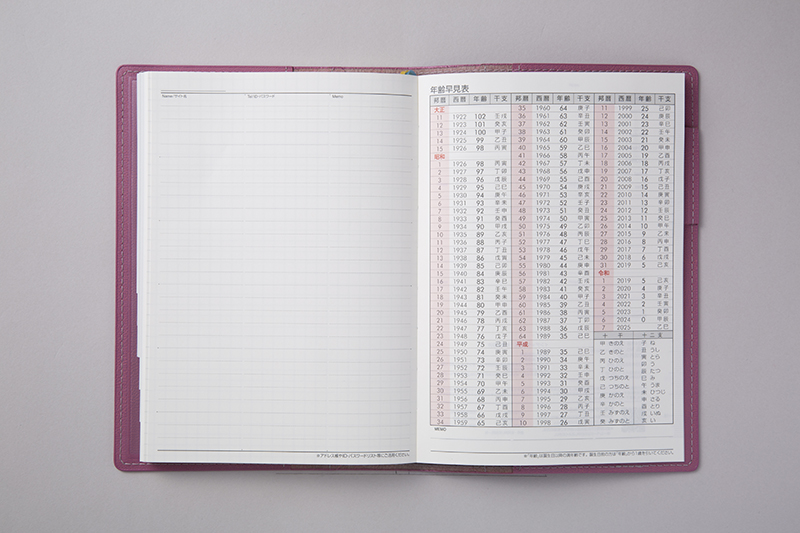 Name/サイト名 Tel/ID・パスワード Memo
※アドレス帳やID・パスワードリスト等にご活用ください。
年齢早見表
邦暦 西暦 年齢 干支
大正
11 1922 102 壬戌
12 1923 101 癸亥
13 1924 100 甲子
14 1925 99 乙丑
15 1926 98 丙寅
昭和
1 1926 98 丙寅
2 1927 97 丁卯
3 1928 96 戊辰
4 1929 95 己巳
5 1930 94 庚午
6 1931 93 辛未
7 1932 92 壬申
8 1933 91 癸酉
9 1934 90 甲戌
10 1935 89 乙亥
11 1936 88 丙子
12 1937 87 丁丑
13 1938 86 戊寅
14 1939 85 己卯
15 1940 84 庚辰
16 1941 83 辛巳
17 1942 82 壬午
18 1943 81 癸未
19 1944 80 甲申
20 1945 79 乙酉
21 1946 78 丙戌
22 1947 77 丁亥
23 1948 76 戊子
24 1949 75 己丑
25 1950 74 庚寅
26 1951 73 辛卯
27 1952 72 壬辰
28 1953 71 癸巳
29 1954 70 甲午
30 1955 69 乙未
31 1956 68 丙申
32 1957 67 丁酉
33 1958 66 戊戌
34 1959 65 己亥
邦暦 西暦 年齢 干支
35 1960 64 庚子
36 1961 63 辛丑
37 1962 62 壬寅
38 1963 61 癸卯
39 1964 60 甲辰
40 1965 59 乙巳
41 1966 58 丙午
42 1967 57 丁未
43 1968 56 戊申
44 1969 55 己酉
45 1970 54 庚戌
46 1971 53 辛亥
47 1972 52 壬子
48 1973 51 癸丑
49 1974 50 甲寅
50 1975 49 乙卯
51 1976 48 丙辰
52 1977 47 丁巳
53 1978 46 戊午
54 1979 45 己未
55 1980 44 庚申
56 1981 43 辛酉
57 1982 42 壬戌
58 1983 41 癸亥
59 1984 40 甲子
60 1985 39 乙丑
61 1986 38 丙寅
62 1987 37 丁卯
63 1988 36 戊辰
64 1989 35 己巳
平成
1 1989 35 己巳
2 1990 34 庚午
3 1991 33 辛未
4 1992 32 壬申
5 1993 31 癸酉
6 1994 30 甲戌
7 1995 29 乙亥
8 1996 28 丙子
9 1997 27 丁丑
10 1998 26 戊寅
邦暦 西暦 年齢 干支
11 1999 25 己卯
12 2000 24 庚辰
13 2001 23 辛巳
14 2002 22 壬午
15 2003 21 癸未
16 2004 20 甲申
17 2005 19 乙酉
18 2006 18 丙戌
19 2007 17 丁亥
20 2008 16 戊子
21 2009 15 己丑
22 2010 14 庚寅
23 2011 13 辛卯
24 2012 12 壬辰
25 2013 11 癸巳
26 2014 10 甲午
27 2015 9 乙未
28 2016 8 丙申
29 2017 7 丁酉
30 2018 6 戊戌
31 2019 5 己亥
令和
1 2019 5 己亥
2 2020 4 庚子
3 2021 3 辛丑
4 2022 2 壬寅
5 2023 1 癸卯
6 2024 0 甲辰
7 2025 乙巳
十干
甲 きのえ
乙 きのと
丙 ひのえ
丁 ひのと
戊 つちのえ
己 つちのと
庚 かのえ
辛 かのと
壬 みずのえ
癸 みずのと
十二支
子 ね
丑 うし
寅 とら
卯 う
辰 たつ
巳 み
午 うま
未 ひつじ
申 さる
酉 とり
戌 いぬ
亥 い
MEMO
※「年齢」は誕生日以降の満年齢です。誕生日前の方は「年齢」から1歳を引いてください。